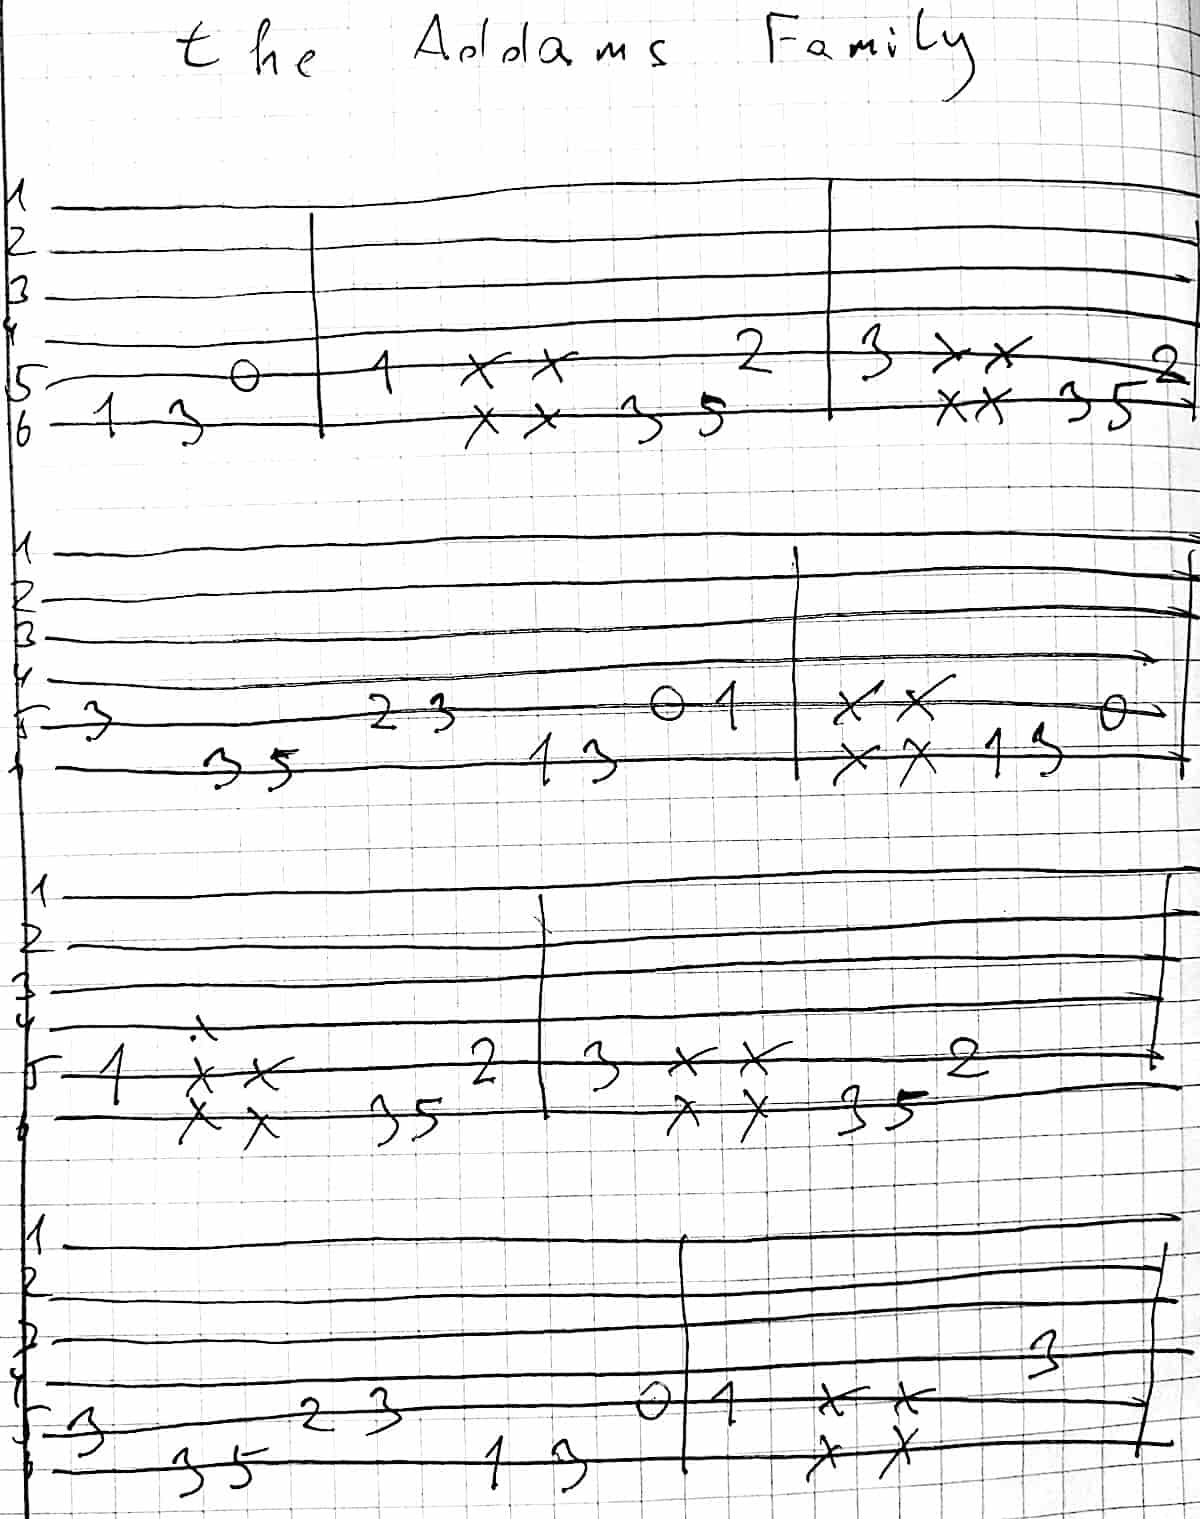 the Addams Family
1
2
3
4
5 0 1 x x 2 3 x x 2
6 1 3 x x 3 5 x x 3 5
1
2
3
4
5 3 2 3 0 1 x x 0
3 5 1 3 x x 1 3
1
2
3
4 x
5 1 x x 2 3 x x 2
6 x x 3 5 x x 3 5
1
2
3
4 3
5 3 2 3 0 1 x x
3 5 1 3 x x